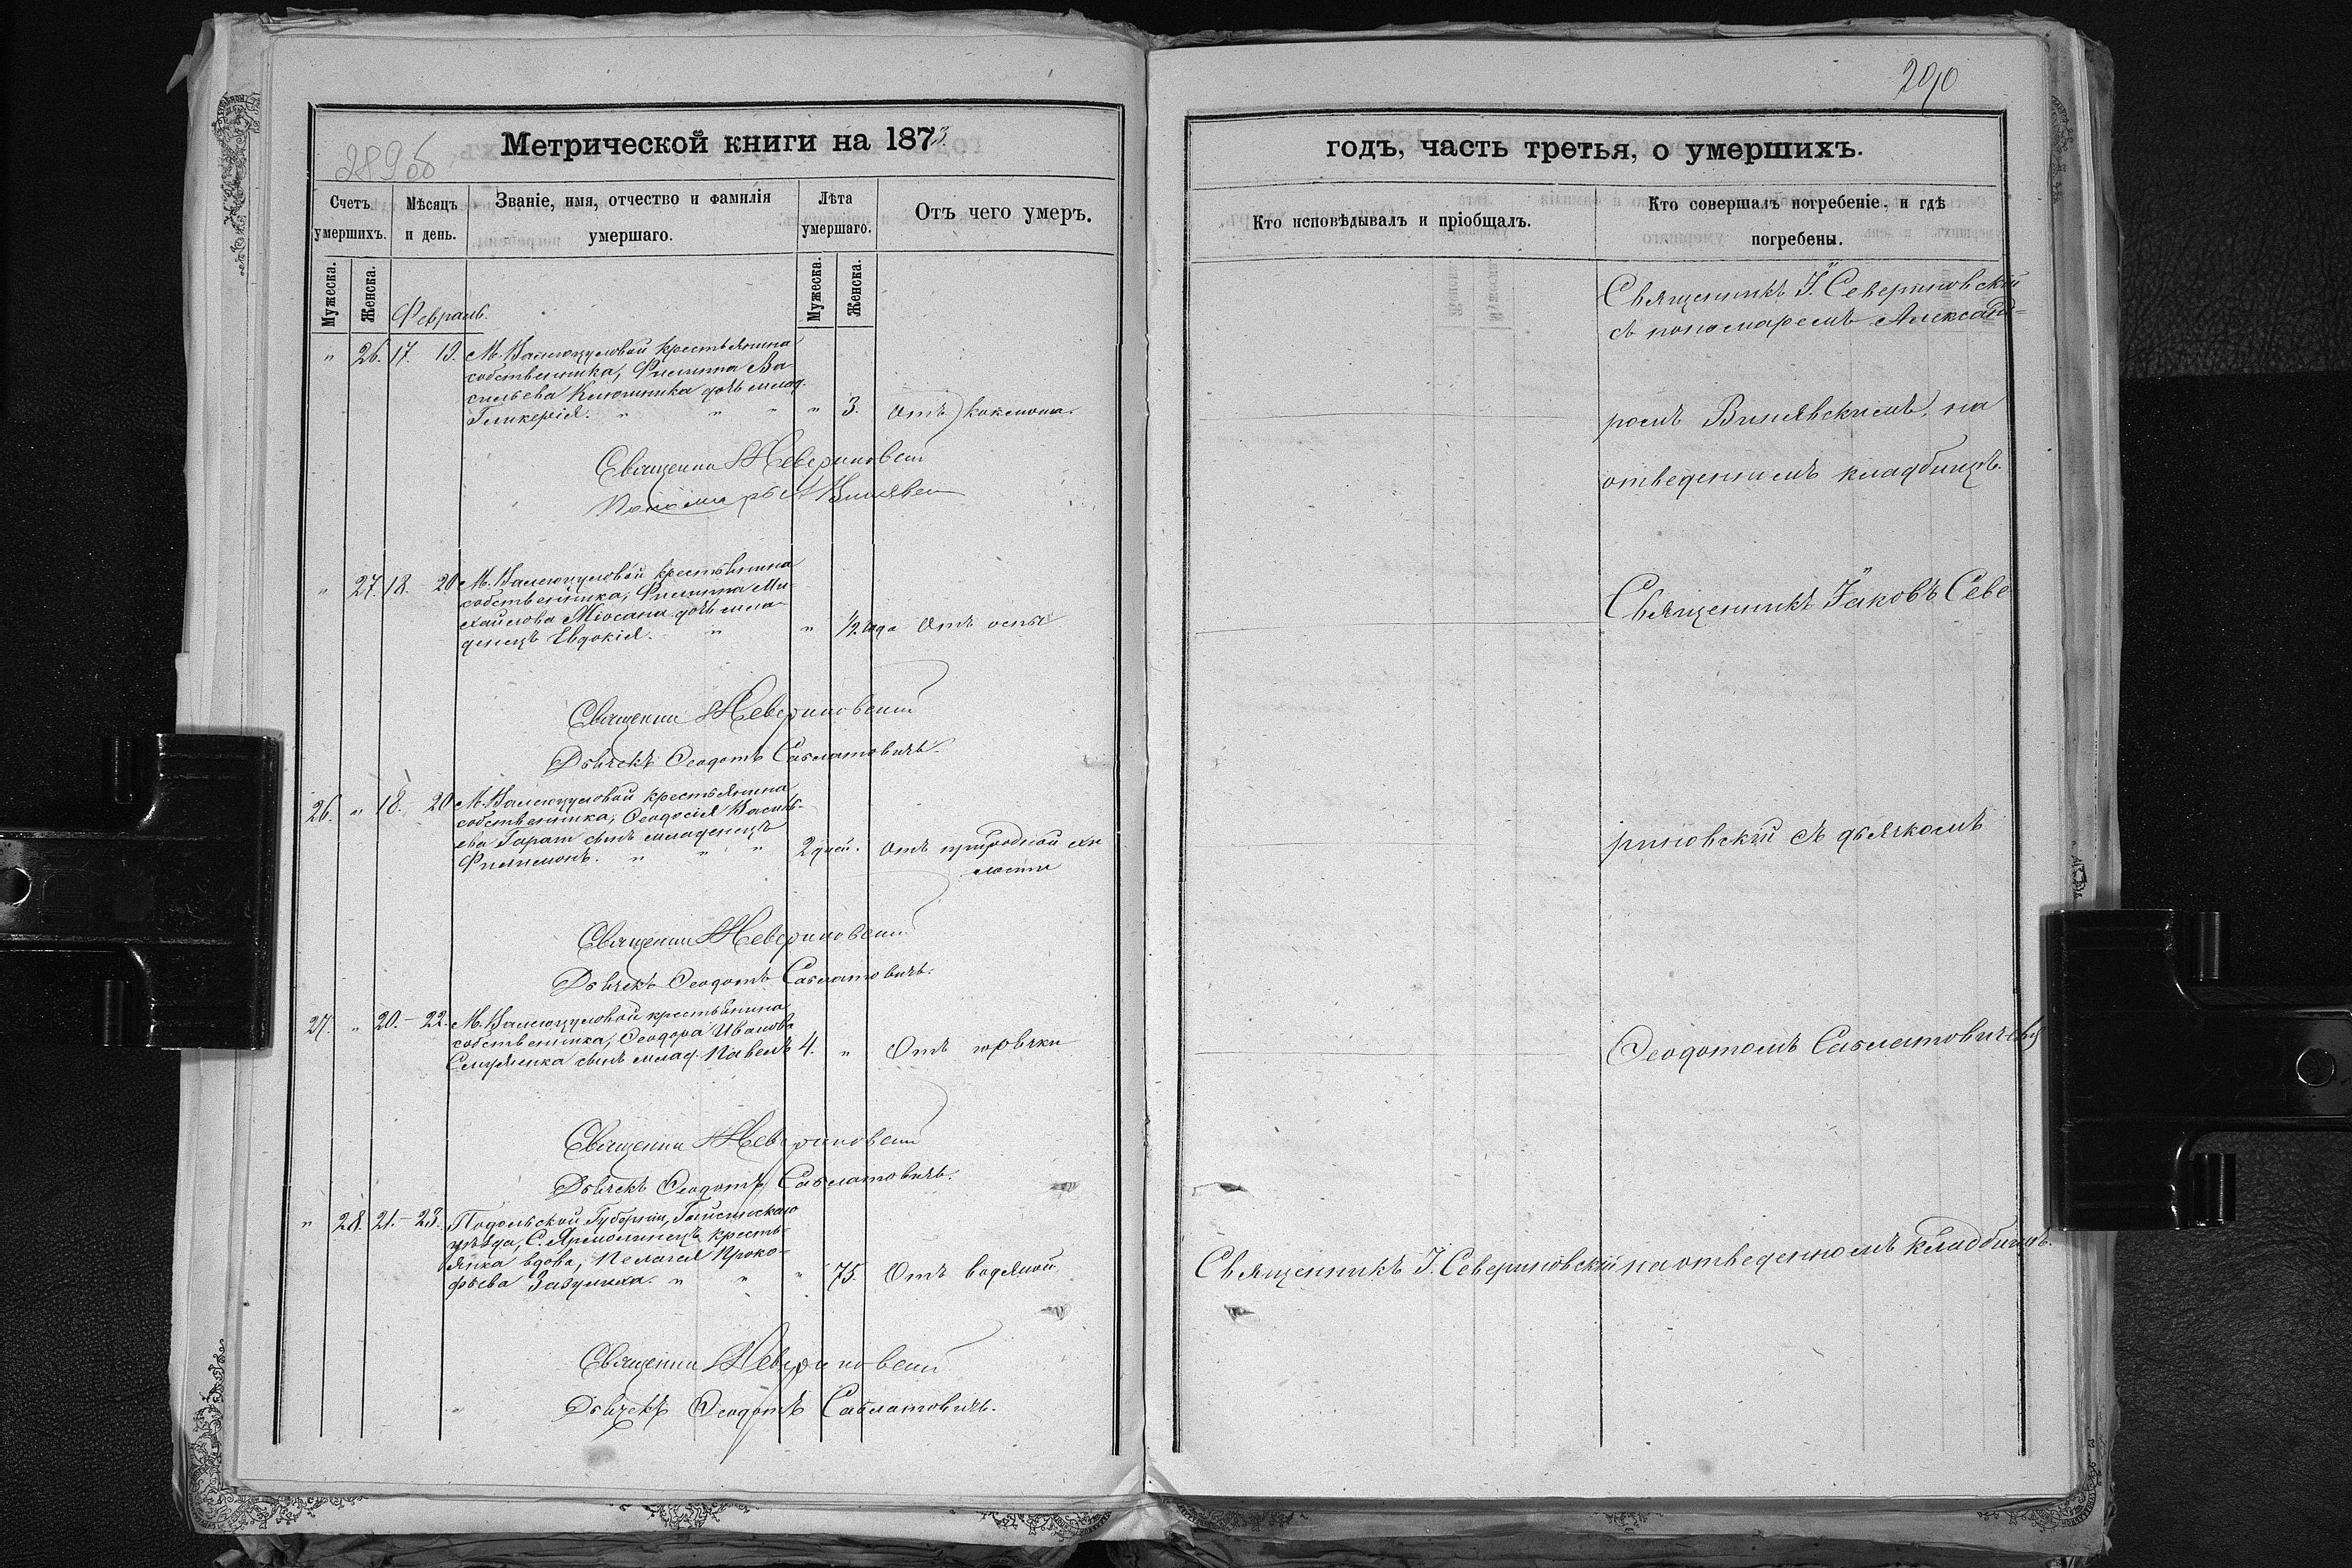 289об
Метрической книги на 1873
Счетъ умершихъ.
Мѣсяцъ и день.
Званіе, имя, отчество и фамилія умершаго.
Лѣта умершаго.
Отъ чего умеръ.
Мужеска.
Женска.
Мужеска.
Женска.
Февраль.
" 26. 17. 19. М. Валегоцуловой крестьянина
собственника, Филиппа Ва-
сильева дочь млад.
Гликерія. " " " " 3. Отъ коклюша.
Священни Севериновскій
Пономарь А Вилявск
" 27. 18. - 20 М. Валегоцуловой крестьянина
собственника, Филиппа Ми-
хайлова дочь мла-
денецъ Евдокія. " " 1/2 года Отъ оспы
Священни Севериновскій
Дьячекъ Ѳеодотъ Саблатовичъ.
26. " 18. 20 М. Валегоцуловой крестьянина
собственника, Ѳеодосія Василь-
ева сынъ младенецъ
Филимонъ. " " " 2 дней. Отъ природной сла
лости
Священни Севериновскій
Дьячекъ Ѳеодотъ Саблатовичъ.
27. " 20. - 22. М. Валегоцуловой крестьянина
собственника, Ѳеодора Иванова
сынъ млад. Павелъ 4. " Отъ горячки
Священни Севериновскій
Дьячекъ Ѳеодотъ Саблатовичъ.
" 28. 21. - 23. Подольской Губерніи, Гайсинскаго
уѣзда, С. Ярмолинецъ кресть-
янка вдова, Пелагія Проко-
фьева " " " 75. Отъ водяной
Священни Севериновскій
Дьячекъ Ѳеодотъ Саблатовичъ.
290
годъ, часть третья, о умершихъ.
Кто исповѣдывалъ и пріобщалъ.
Кто совершалъ погребеніе, и гдѣ погребены.
Священникъ І. Севериновскій
съ пономаремъ Александ-
ромъ Вилявскимъ, на
отведенномъ кладбищѣ.
Священникъ Іаковъ Севе
риновскій съ дьячкомъ
Ѳеодотомъ Саблатовичемъ
Священникъ І. Севериновскій на отведенномъ кладбищѣ.